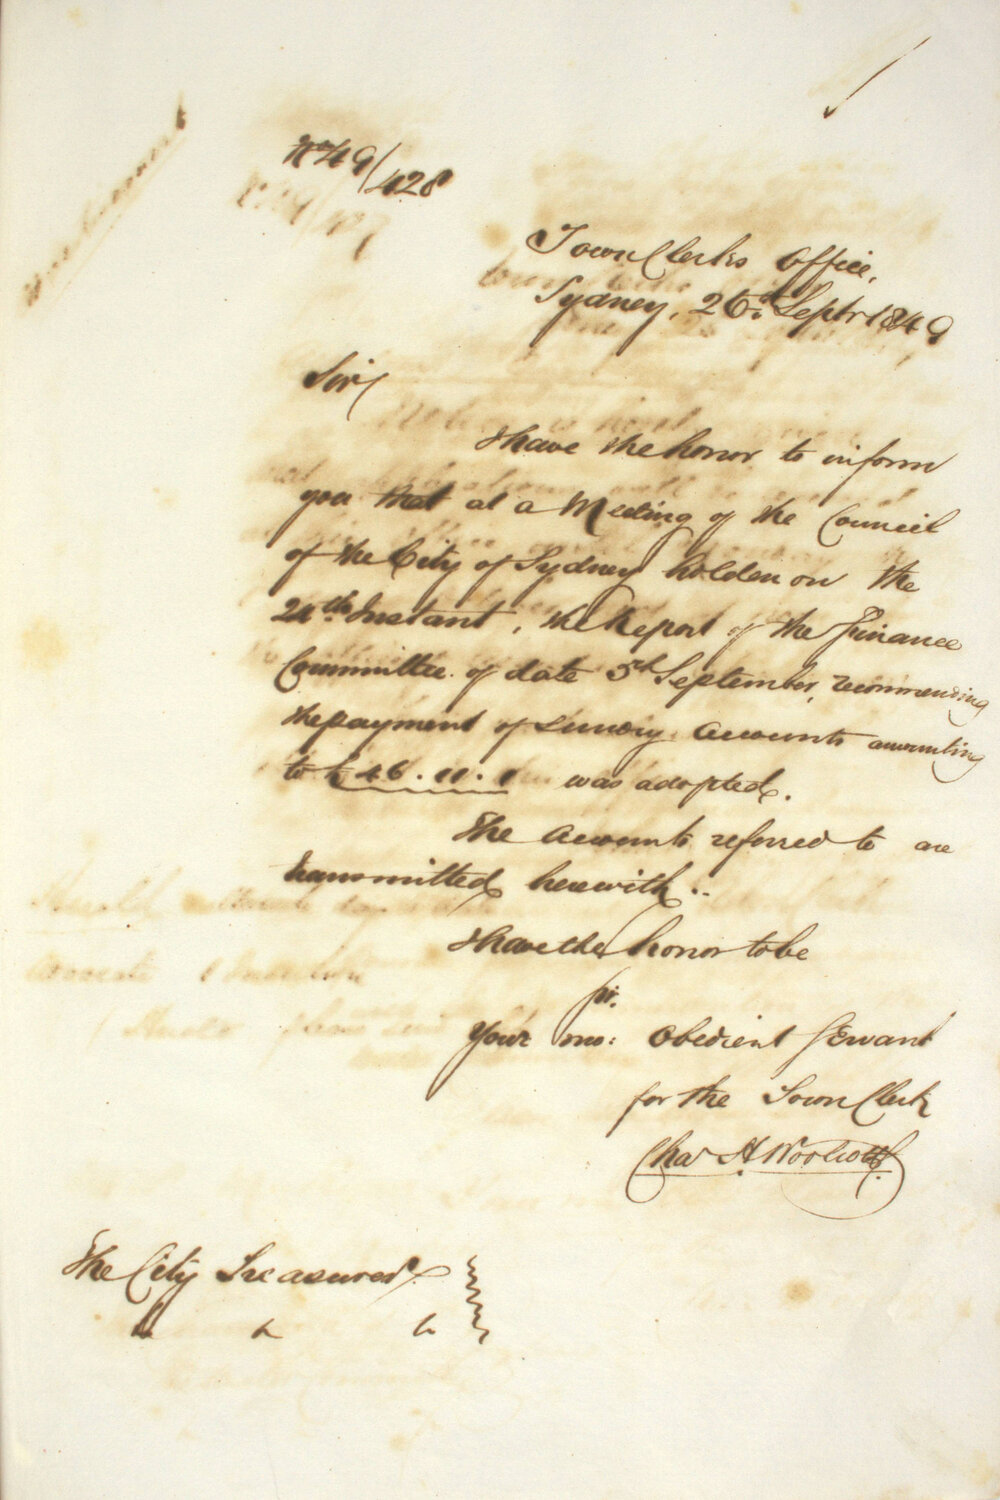 No 49/428
Town Clerks Office,
Sydney, 26th Septr 1849
Sir
I have the honor to inform
you that at a Meeting of the Council
of the City of Sydney holden on the
24th Instant, the Report of the Finance
Committee of date 5th September, recommending
the payment of Sundry Accounts amounting
to £46.11.1 was adopted.
The Accounts referred to are
transmitted herewith..
I have the honor to be
Sir.
Your mo: Obedient Servant
for the Town Clerk
Chas H. Woolcott
The City Treasurer